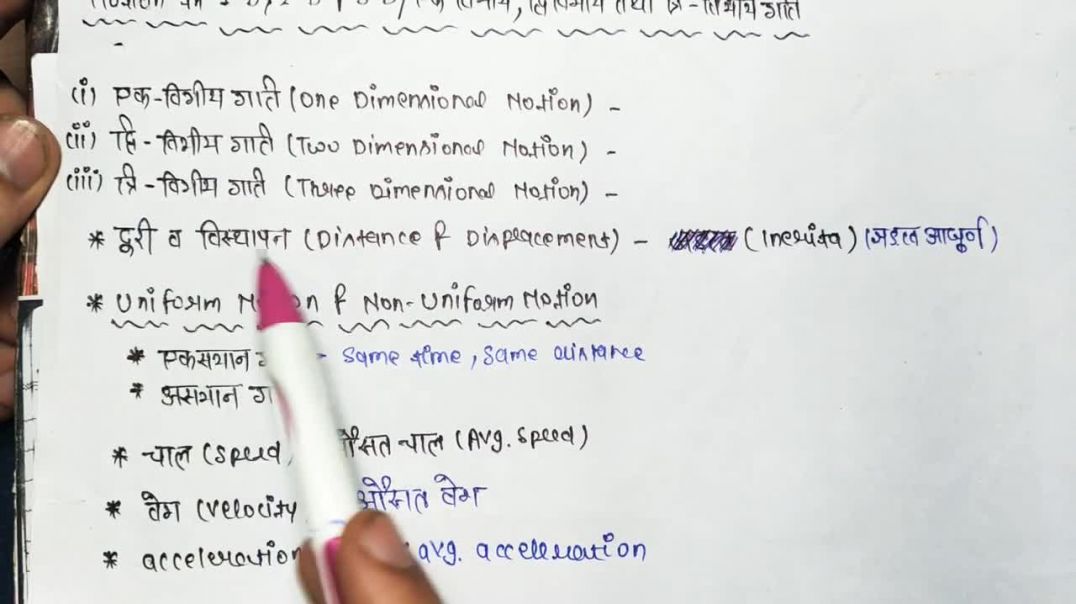 Motion in 1-D, 2-D, 3-D, एक विमीय, द्वि विमीय तथा त्रि-विमीय गति
(i) एक-विमीय गति (One Dimensional Motion) -
(ii) द्वि-विमीय गति (Two Dimensional Motion) -
(iii) त्रि-विमीय गति (Three Dimensional Motion) -
* दूरी व विस्थापन (Distance & Displacement) - (Inertia) (जड़त्व आघूर्ण)
* Uniform Motion & Non-Uniform Motion
* एकसमान - same time, same distance
* असमान
* चाल (Speed, औसत चाल (Avg. Speed)
* वेग (Velocity औसत वेग
* acceleration avg. acceleration